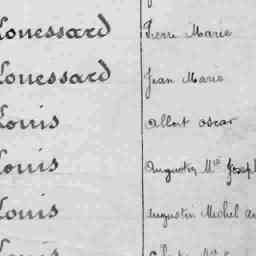 Louessard Pierre Marie
Louessard Jean Marie
Louis Albert oscar
Louis Augustin Mie Joseph
Louis Augustin Michel
Louis